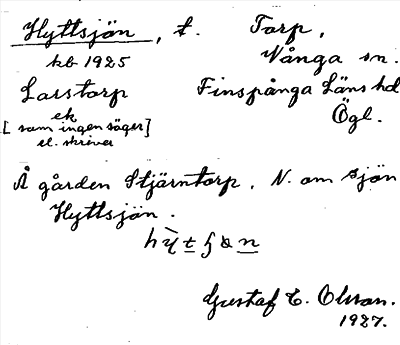 Hyttsjön, t. Torp,
kb 1925 Vånga sn.
Larstorp Finspånga Läns hd
ek Ögl.
[som ingen säger]
el. skriver
Å gården Stjärntorp, N. om sjön
Hyttsjön.
Gustaf E. Olsson.
1927.